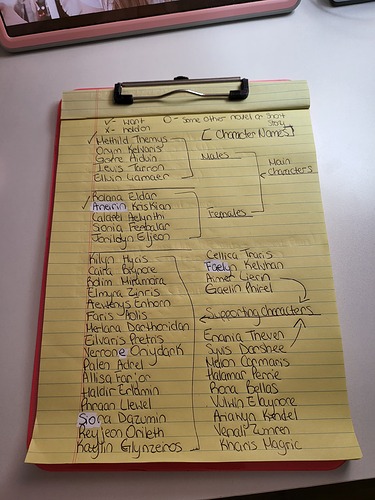 ✓- want O- Some other novel or short story
x- hold on [Character Names]
✓ Methild Themus
Orym Kelvaris
Goare Aldwin
Lewis Tarron
Ellwin Gamaer
Males
Main Characters
Roiana Eldar
✓ Aneirin KrisKian
Calarel Aelynthi
Sonia Fenbalar
Jorildyn Eljson
Females
Kilyn Hyris
Caira Baynore
Rolim Miramora
Elmyra Zinris
Aewthys Enhorn
Faris Yolis
Merlana Dorthonidan
Eilvaris Poetris
Verrone Onydark
Palen Adrel
Allisa Farjor
Haldir Erlamin
Phraan Llewel
Siona Dazumin
Reyjeon Orileth
Kaylin Glynzeros
Cellica Traris
Faelyn Kelvhan
Aimer Lierin
Gaelin Phirel
Supporting Characters
Enania Theven
Syvis Darshee
Melion Cormaris
Halamar Perrie
Rona Bellas
Vulwin Elaynore
Ariawyn Kendel
Venali Zumren
Kharis Magric